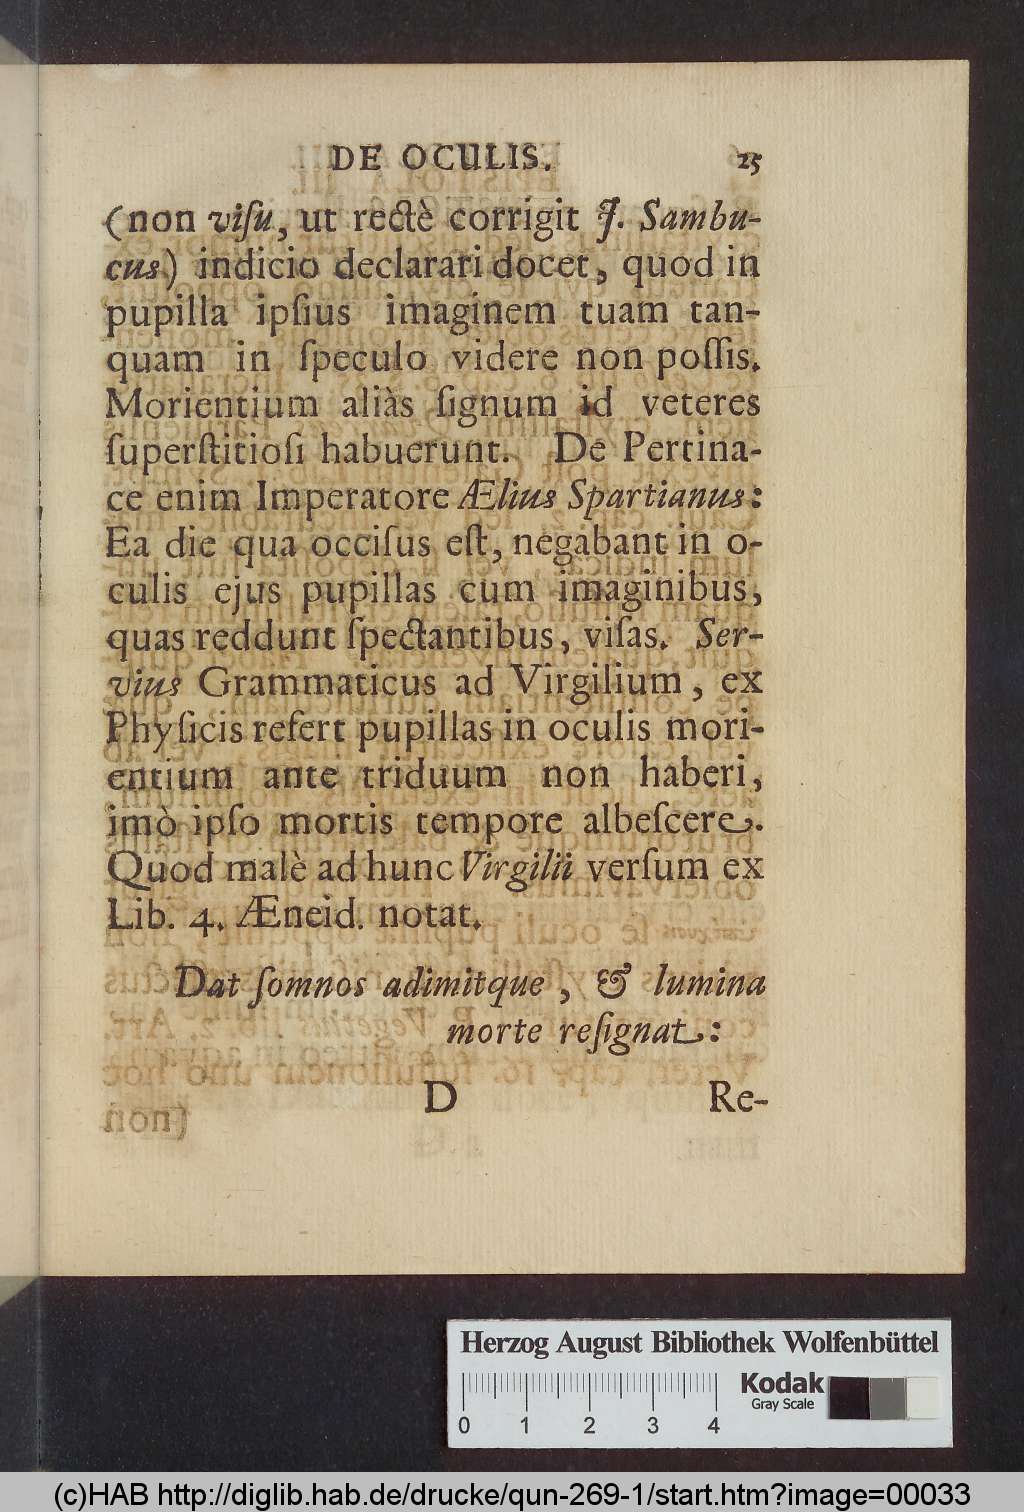 DE OCULIS. 25
(non viſu, ut rectè corrigit J. Sambu-
cus) indicio declarari docet, quod in
pupilla ipſius imaginem tuam tan-
quam in ſpeculo videre non poſſis.
Morientium aliàs ſignum id veteres
ſuperſtitioſi habuerunt. De Pertina-
ce enim Imperatore Ælius Spartianus:
Ea die qua occiſus eſt, negabant in o-
culis ejus pupillas cum imaginibus,
quas reddunt ſpectantibus, viſas. Ser-
vius Grammaticus ad Virgilium, ex
Phyſicis refert pupillas in oculis mori-
entium ante triduum non haberi,
imò ipſo mortis tempore albeſcere.
Quod malè ad hunc Virgilii verſum ex
Lib. 4. Æneid. notat.
Dat ſomnos adimitque, & lumina
morte reſignat:
D Re-
Herzog August Bibliothek Wolfenbüttel
Kodak
Gray Scale
0 1 2 3 4
(c)HAB http://diglib.hab.de/drucke/qun-269-1/start.htm?image=00033